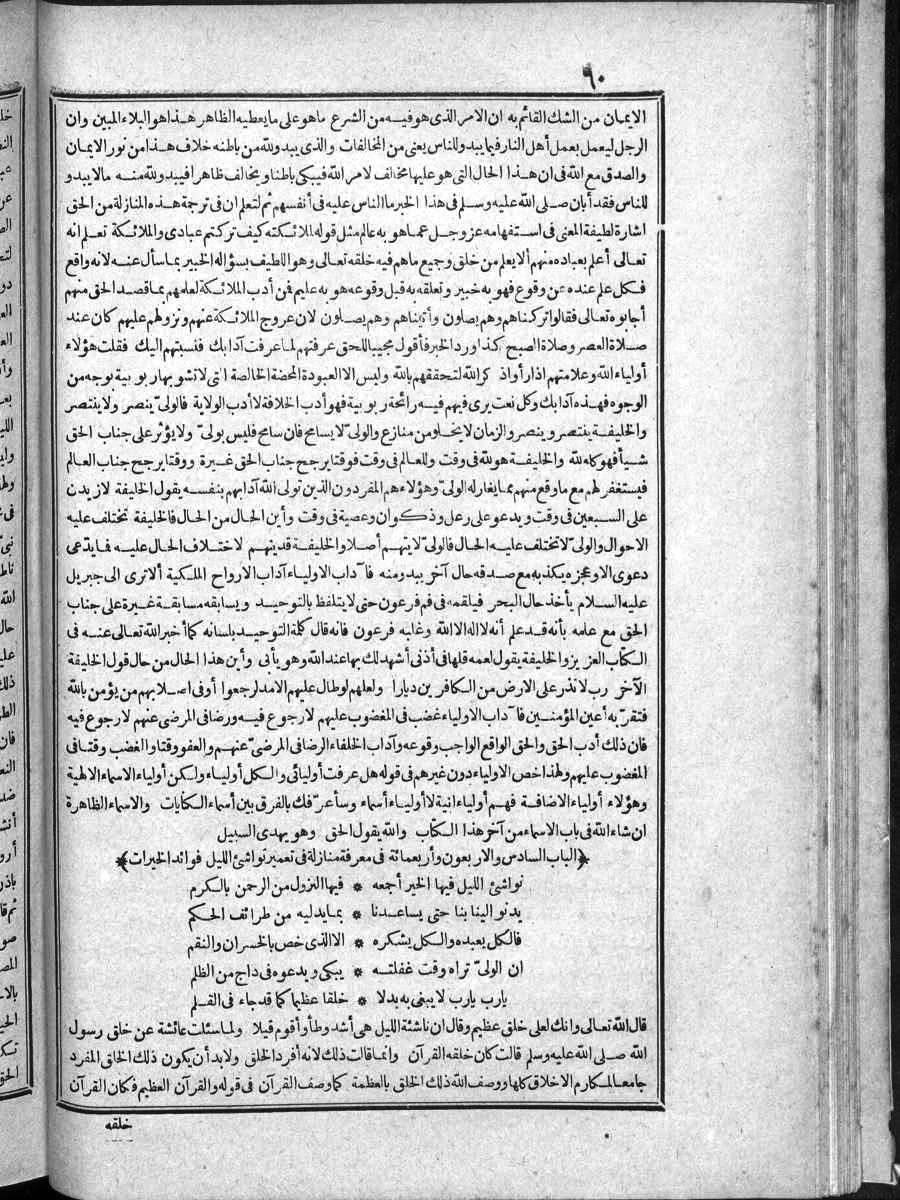 ٦٠
الايمان من الشك القائم به ان الامر الذى هو فيه من الشرع ماهو على ما يعطيه الظاهر هذا هو البلاء المبين وان
الرجل ليعمل بعمل أهل النار فيما يبدو للناس يعنى من المخالفات والذى يبدو لله من باطنه خلاف هذا من نور الايمان
والصدق مع الله فى ان هذا الحال التى هو عليها مخالف لامر الله فيبكى باطنا ويخالف ظاهرا فيبدو لله منه مالا يبدو
للناس فقد أبان صلى الله عليه وسلم فى هذا الخبر ما الناس عليه فى أنفسهم ثم لتعلم ان فى ترجمة هذه المنازلة من الحق
اشارة لطيفة المعنى فى استفهامه عز وجل عما هو به عالم مثل قوله لملائكته كيف تركتم عبادى والملائكة تعلم انه
تعالى أعلم بعباده منهم ألا يعلم من خلق وجميع ماهم فيه خلقه تعالى وهو اللطيف بسؤاله الخبير بما سأل عنه لانه واقع
فكل علم عنده عن وقوع فهو به خبير وتعلقه به قبل وقوعه هو به عليم فمن أدب الملائكة لعلمهم بما قصد الحق منهم
أجابوه تعالى فقالوا تركناهم وهم يصلون وأتيناهم وهم يصلون لان عروج الملائكة عنهم ونزولهم عليهم كان عند
صلاة العصر وصلاة الصبح كذا ورد الخبر فأقول مجيبا للحق عرفتهم لما عرفت آدابك فنسبتهم اليك فقلت هؤلاء
أولياء الله وعلامتهم اذا رأواذ كر الله لتحققهم بالله وليس الا العبودة المحضة الخالصة التى لا تشوبها ربوبية بوجه من
الوجوه فهذه آدابك وكل نعت يرى فيهم فيه رائحة ربوبية فهو أدب الخلافة لا أدب الولاية فالولىّ ينصر ولا ينتصر
والخليفة ينتصر وينصر والزمان لا يخلو من منازع والولىّ لا يسامح فان سامح فليس بولىّ ولا يؤثر على جناب الحق
شيأ فهو كله لله والخليفة هو لله فى وقت وللعالم فى وقت فوقتا يرجح جناب الحق غيرة ووقتا يرجح جناب العالم
فيستغفر لهم مع ما وقع منهم بما يغار له الولىّ وهؤلاء هم المفردون الذين تولى الله آدابهم بنفسه يقول الخليفة لازيدن
على السبعين فى وقت ويدعو على رعل وذكوان وعصية فى وقت وأين الحال من الحال فالخليفة تختلف عليه
الاحوال والولىّ لا تختلف عليه الحال فالولىّ لا يتهم أصلا والخليفة قد يتهم لاختلاف الحال عليه فما يدّعى
دعوى الا وعجزه يكذبه مع صدقه حال آخر يبدو منه فآداب الاولياء آداب الارواح الملكية ألا ترى الى جبريل
عليه السلام يأخذ حال البحر فيلقمه فى فم فرعون حتى لا يتلفظ بالتوحيد ويسابقه مسابقة غيرة على جناب
الحق مع علمه بأنه قد علم أنه لا اله الا الله وغلبه فرعون فانه قال كلمة التوحيد بلسانه كما أخبر الله تعالى عنه فى
الكتاب العزيز والخليفة يقول لعمه قلها فى أذنى أشهد لك بها عند الله وهو يأبى وأين هذا الحال من حال قول الخليفة
الآخر رب لا تذر على الارض من الكافرين ديارا ولعلهم لو طال عليهم الامد لرجعوا أو فى اصلابهم من يؤمن بالله
فتقرّ به أعين المؤمنين فآداب الاولياء غضب فى المغضوب عليهم لا رجوع فيه ورضا فى المرضى عنهم لا رجوع فيه
فان ذلك أدب الحق والحق الواقع الواجب وقوعه وآداب الخلفاء الرضا فى المرضىّ عنهم والعفو وقتا والغضب وقتا فى
المغضوب عليهم ولهذا خص الاولياء دون غيرهم فى قوله هل عرفت أوليائى والكل أولياء ولكن أولياء الاسماء الالهية
وهؤلاء أولياء الاضافة فهم أولياء انية لا أولياء أسماء وسأعرّفك بالفرق بين أسماء الكنايات والاسماء الظاهرة
ان شاء الله فى باب الاسماء من آخر هذا الكتاب والله يقول الحق وهو يهدى السبيل
﴿الباب السادس والاربعون وأربعمائة فى معرفة منازلة فى تعمير نواشئ الليل فوائد الخيرات﴾
نواشئ الليل فيها الخير أجمعه * فيها النزول من الرحمن بالكرم
يدنو الينا بنا حتى يساعدنا * بما يدليه من طرائف الحكم
فالكل يعبده والكل يشكره * الا الذى خص بالخسران والنقم
ان الولىّ تراه وقت غفلته * يبكى ويدعوه فى داج من الظلم
يارب يارب لا يبغى به بدلا * خلقا عظيما كما قد جاء فى القلم
قال الله تعالى وانك لعلى خلق عظيم وقال ان ناشئة الليل هى أشد وطأ وأقوم قيلا ولما سئلت عائشة عن خلق رسول
الله صلى الله عليه وسلم قالت كان خلقه القرآن وانما قالت ذلك لانه أفرد الخلق ولا بد أن يكون ذلك الخلق المفرد
جامعا لمكارم الاخلاق كلها ووصف الله ذلك الخلق بالعظمة كما وصف القرآن فى قوله والقرآن العظيم فكان القرآن
خلقه